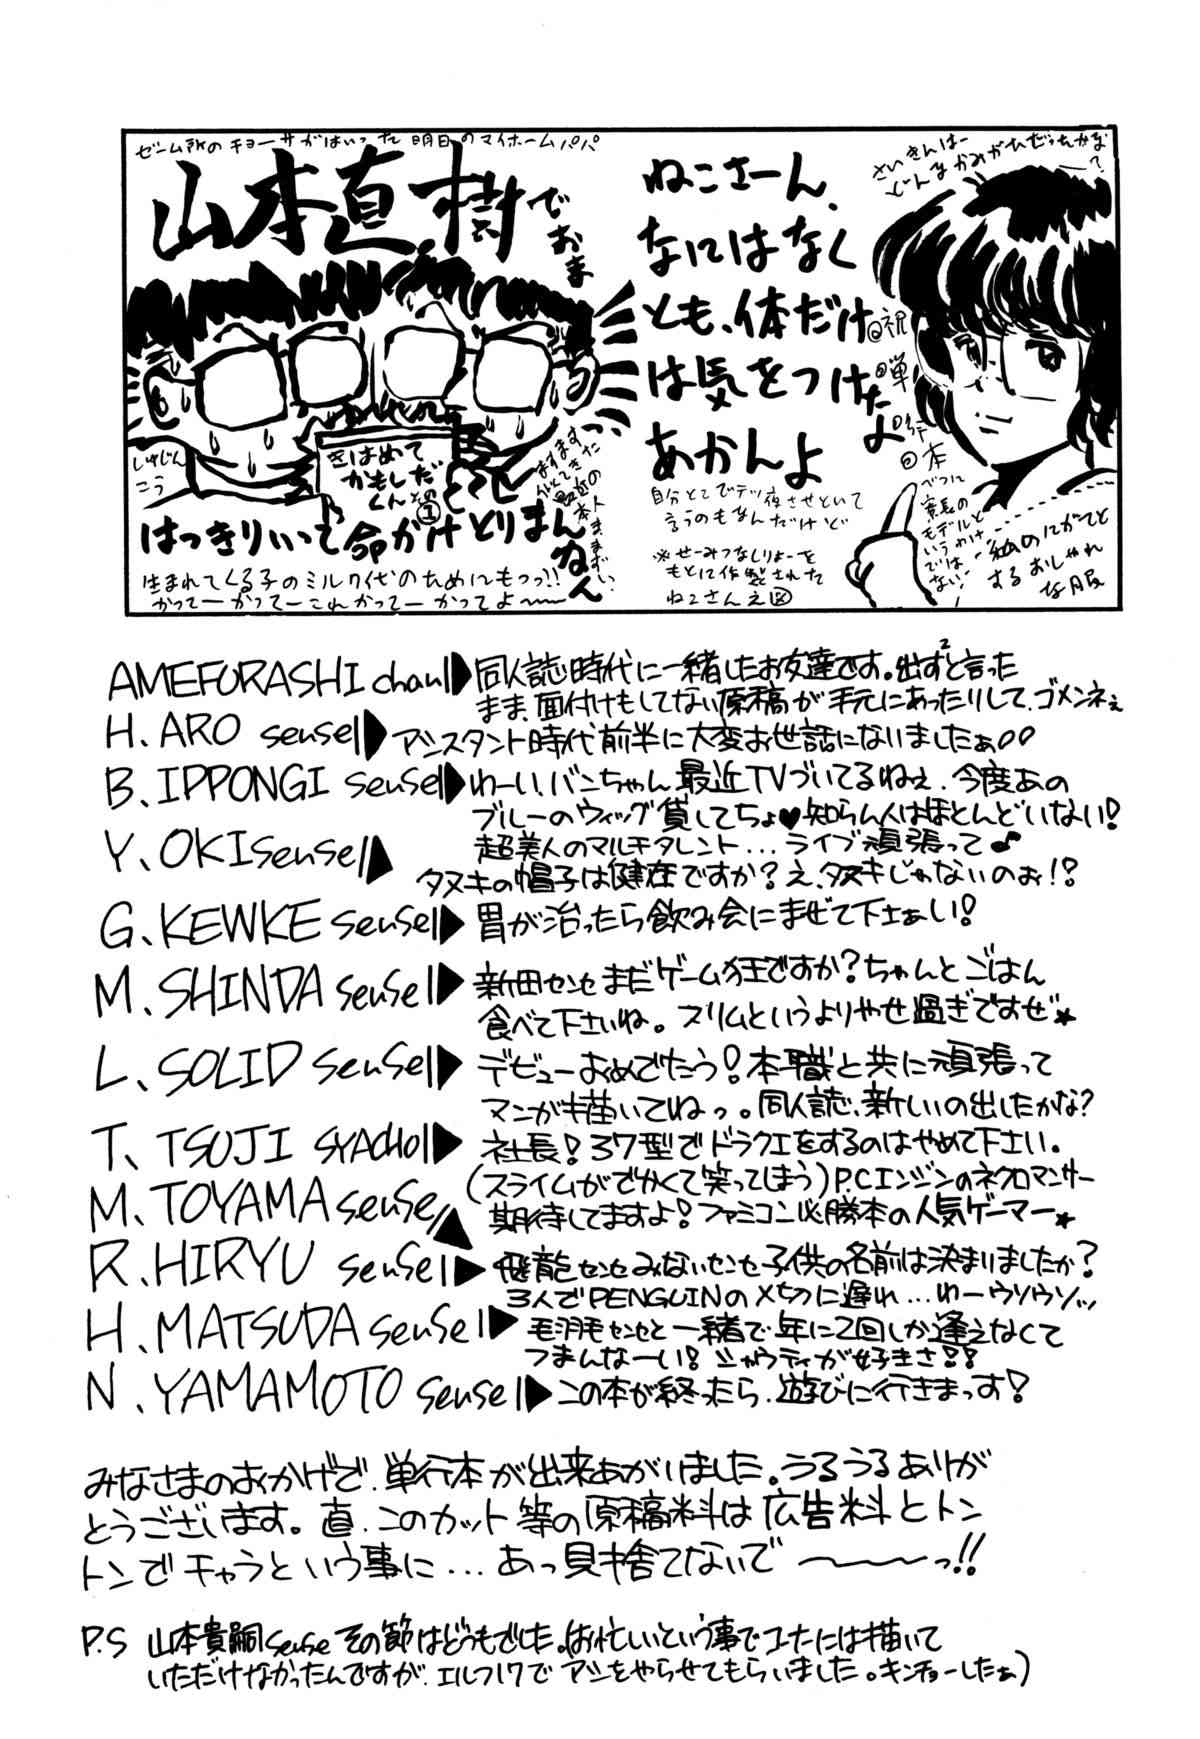 ゼーム所のチョーサがはいった明日のマイホームパパ
山本直樹でおま
しげじんこう
きはめて
かもしだ
くんその①
はっきりいって命がけどりまんねん
生まれてくる子のミルク代のためにもっっ!!
かってーかってーこれかってーかってよ〜〜
ねこさーん、
なにはなく
とも、体だけ
は気をつけなよ
あかんよ
自分とこでテツ夜させといて
言うのもなんだけど
※せーみつなしりょーを
もとに作製された
ねこさんえ図
さいきんは
どんなかみがただったかな?
祝単行本
べつに
家長の
モデルと
いうわけ
ではない!
私のにがてと
するおしゃれ
な服
AMEFURASHI chan 同人誌時代に一緒したお友達です。出ず²と言った
まま、面付けもしてない原稿が手元にあったりして、ゴメンネぇ
H. ARO sensei アシスタント時代前半に大変お世話になりましたぁ
B. IPPONGI sensei わーい、バンちゃん最近TVづいてるねぇ、今度あの
ブルーのウィッグ貸してちょ♥知らん人はほとんどいない!
超美人のマルチタレント...ライブ頑張って♪
Y. OKI sensei タヌキの帽子は健在ですか?え、タヌキじゃないのぉ!?
G. KEWKE sensei 胃が治ったら飲み会にまぜて下さぁい!
M. SHINDA sensei 新田センセまだゲーム狂ですか?ちゃんとごはん
食べて下さいね。スリムというよりやせ過ぎですぜ★
L. SOLID sensei デビューおめでたう!本職と共に頑張って
マンガも描いてねっ。同人誌、新しいの出したかな?
T. TSUJI SYACHO 社長!37型でドラクエをするのはやめて下さい。
(スライムがでかくて笑ってしまう)
M. TOYAMA sensei P.Cエンジンのネクロマンサー
期待してますよ!ファミコン必勝本の人気ゲーマー★
R. HIRYU sensei 飛龍センセみないセンセ子供の名前は決まりましたか?
3人でPENGUINの〆切に遅れ...わーウソウソッ
H. MATSUDA sensei 毛羽毛センセと一緒で年に2回しか逢えなくて
つまんなーい!シャウティが好きさ!!
N. YAMAMOTO sensei この本が終ったら、遊びに行きまっす!
みなさまのおかげで、単行本が出来あがりました。うるうるありが
とうございます。直、このカット等の原稿料は広告料とトン
トンでチャラという事に...あっ見捨てないで〜〜〜っ!!
P.S 山本貴嗣senseその節はどうもでした。(お忙しいという事でコータには描いて
いただけなかったんですが、エルフ17でアシをやらせてもらいました。キンチョーしたぁ)